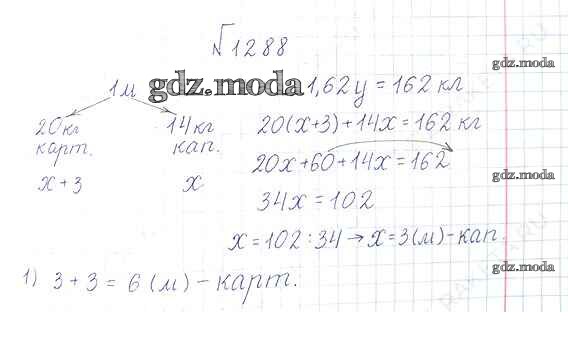 √1288
gdz.moda
1м gdz.moda 1,62 ц = 162 кг
20кг 14кг 20(x+3)+14x=162 кг
gdz.moda
карт. кап.
20x+60+14x=162
x+3 x
gdz.moda
34x=102
x=102:34→x=3(м)-кап.
gdz.moda
1) 3+3=6(м)-карт.